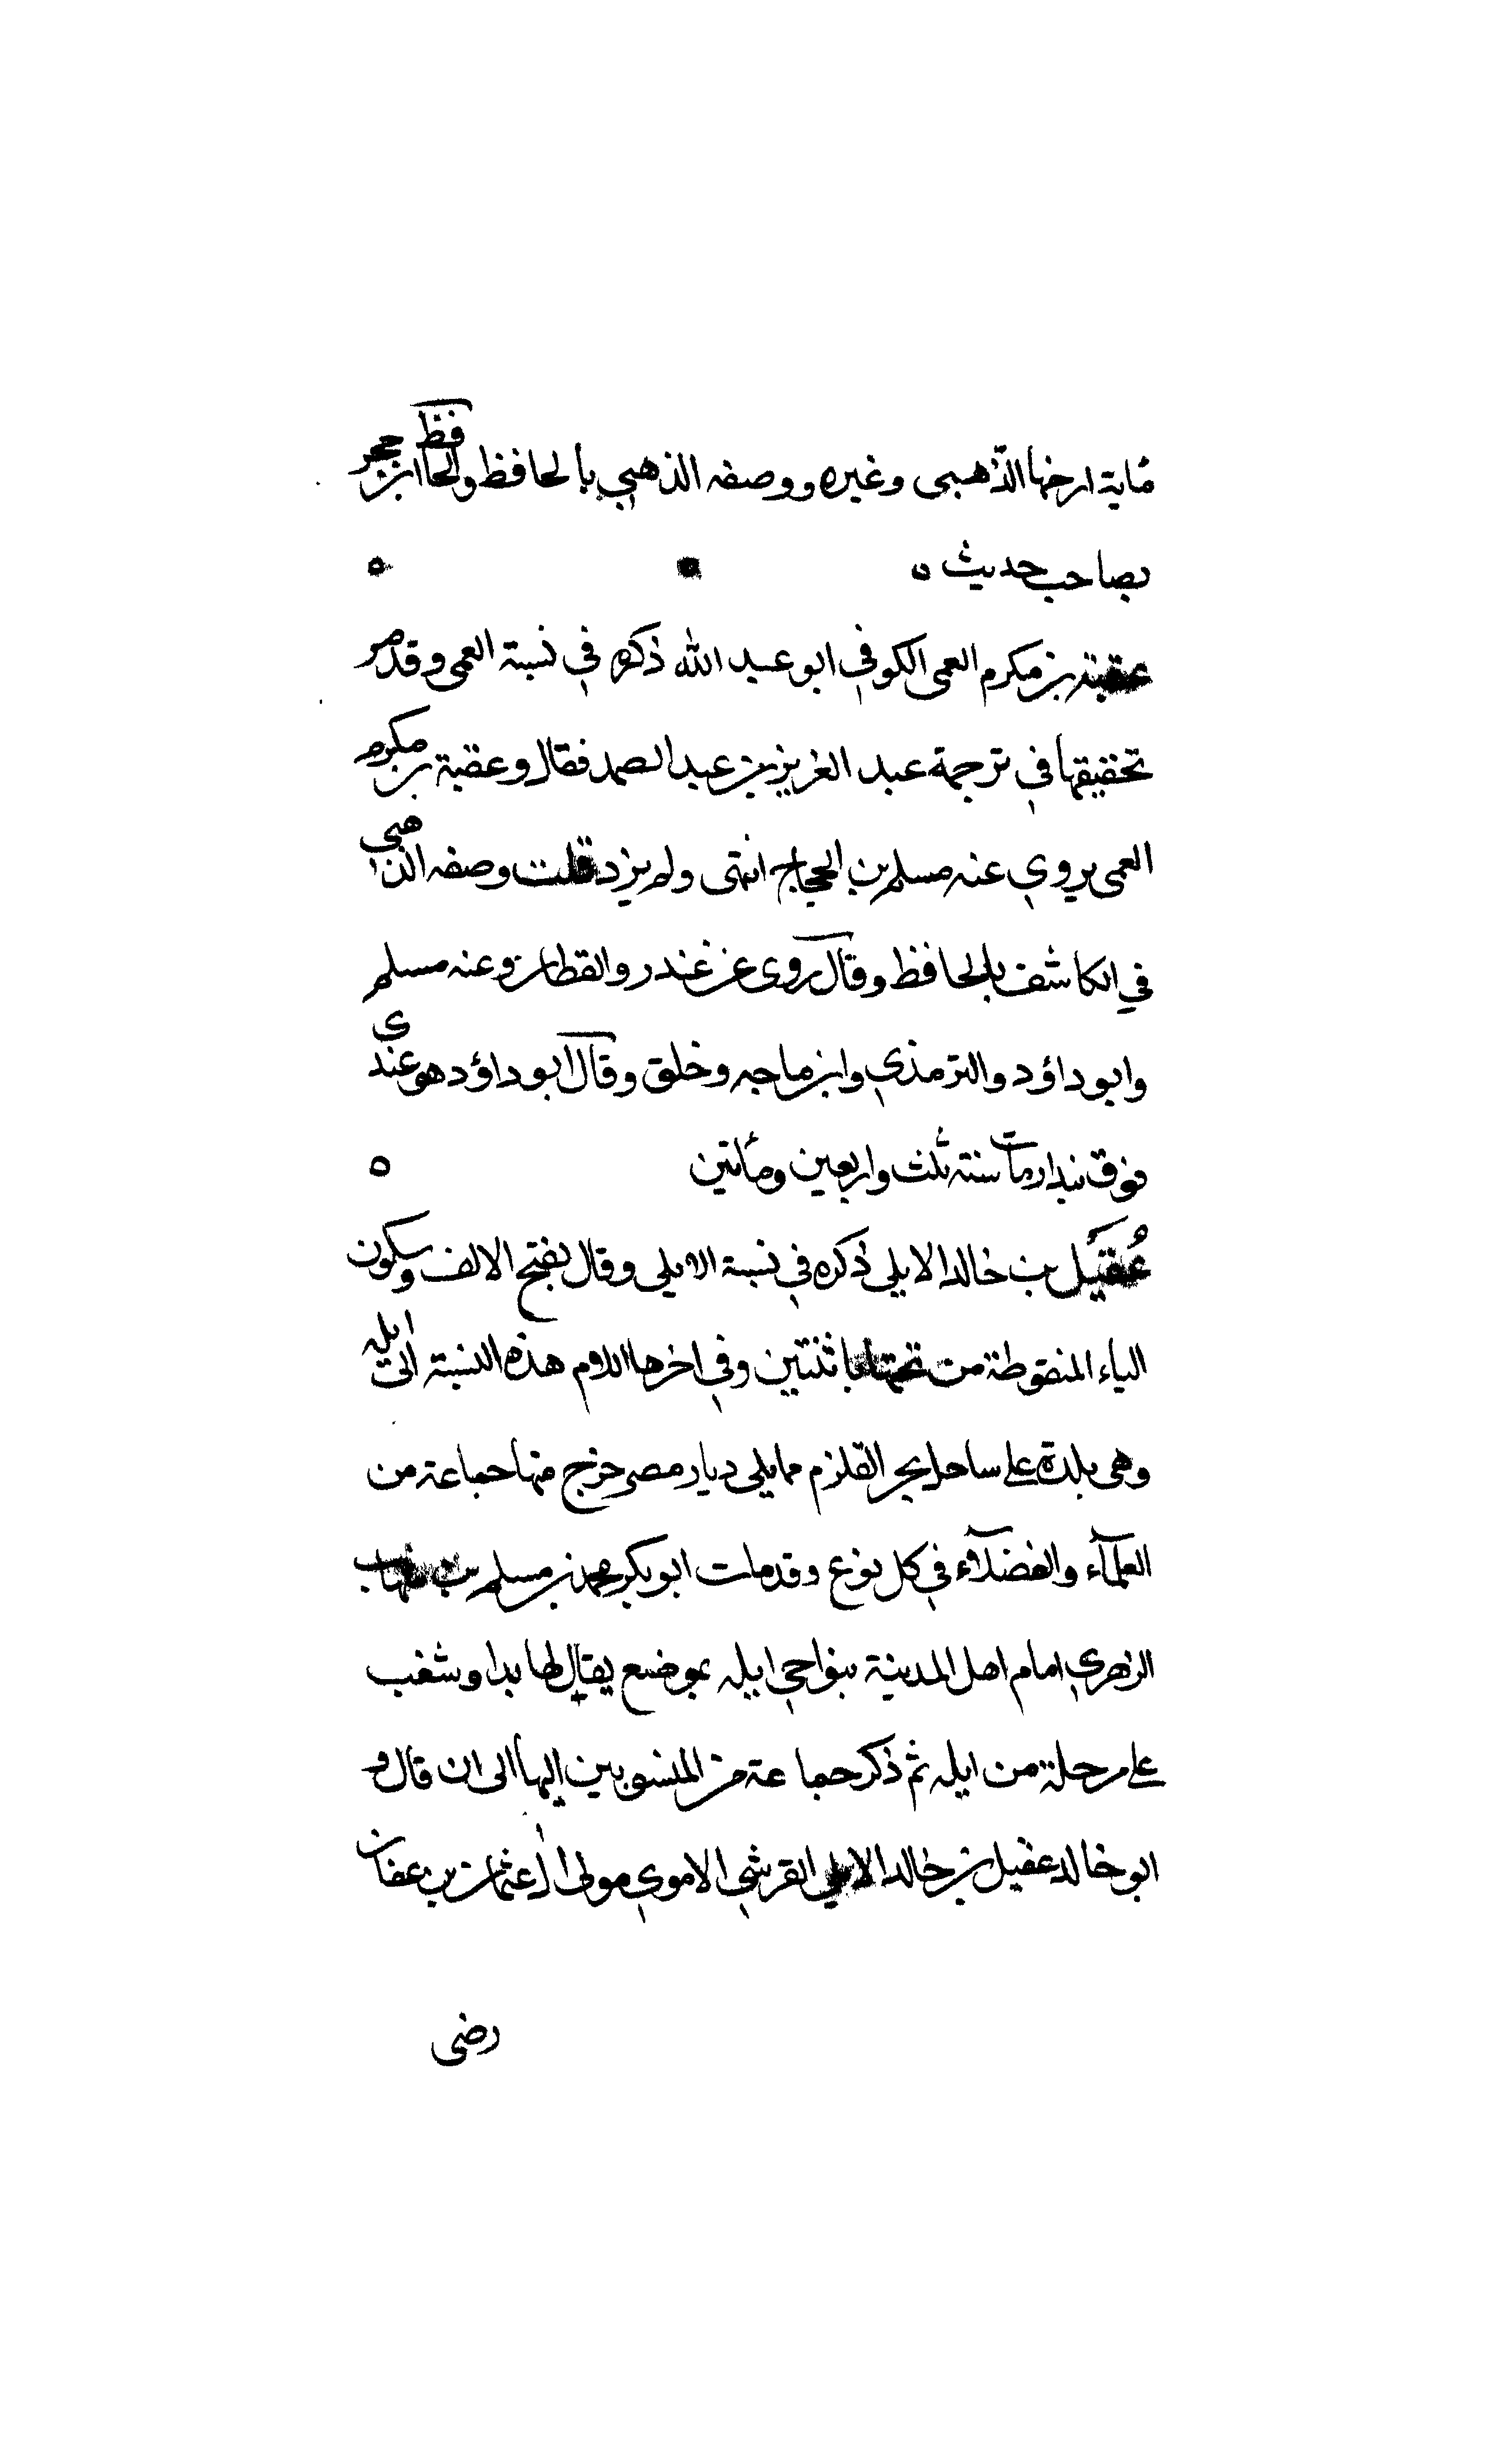 مائة ارخها الذّهبى وغيره ووصفه الذهبي بالحافظ والحافظ ابن حجر
بصاحب حديث ٥ ٥ ٥
عقبة بن مكرم العمى الكوفي ابو عبد الله ذكره في نسبة العمى وقد مر
تحقيقها في ترجمة عبد العزيز بن عبد الصمد فقال وعقبة بن مكرم
العمى يروي عنه مسلم بن الحجاج انتهى ولم يزد قلت وصفه الذهبي
في الكاشف بالحافظ وقال روى عن غندر والقطان وعنه مسلم
وابو داؤد والترمذي وابن ماجه وخلق وقال ابو داؤد هو عندى
فوق بندار مات سنة ثلث واربعين ومأتين ٥
عُقَيل بن خالد الايلى ذكره في نسبة الايلى وقال بفتح الالف وسكون
الياء المنقوطة من تحتها باثنتين وفي اخرها اللام هذه النسبة الى ايله
وهى بلدة على ساحل بحر القلزم مما يلى ديار مصر خرج منها جماعة من
العلمآء والفضلآء في كل نوع وقد مات ابو بكر محمد بن مسلم بن شهاب
الزهري امام اهل المدينة بنواحي ايله بموضع يقال لها بدا وشغب
على مرحلة من ايله ثم ذكر جماعة من المنسوبين اليها الى ان قال و
ابو خالد عقيل بن خالد الايلي القرشي الاموي مولى ال عثمان بن عفان
رضى